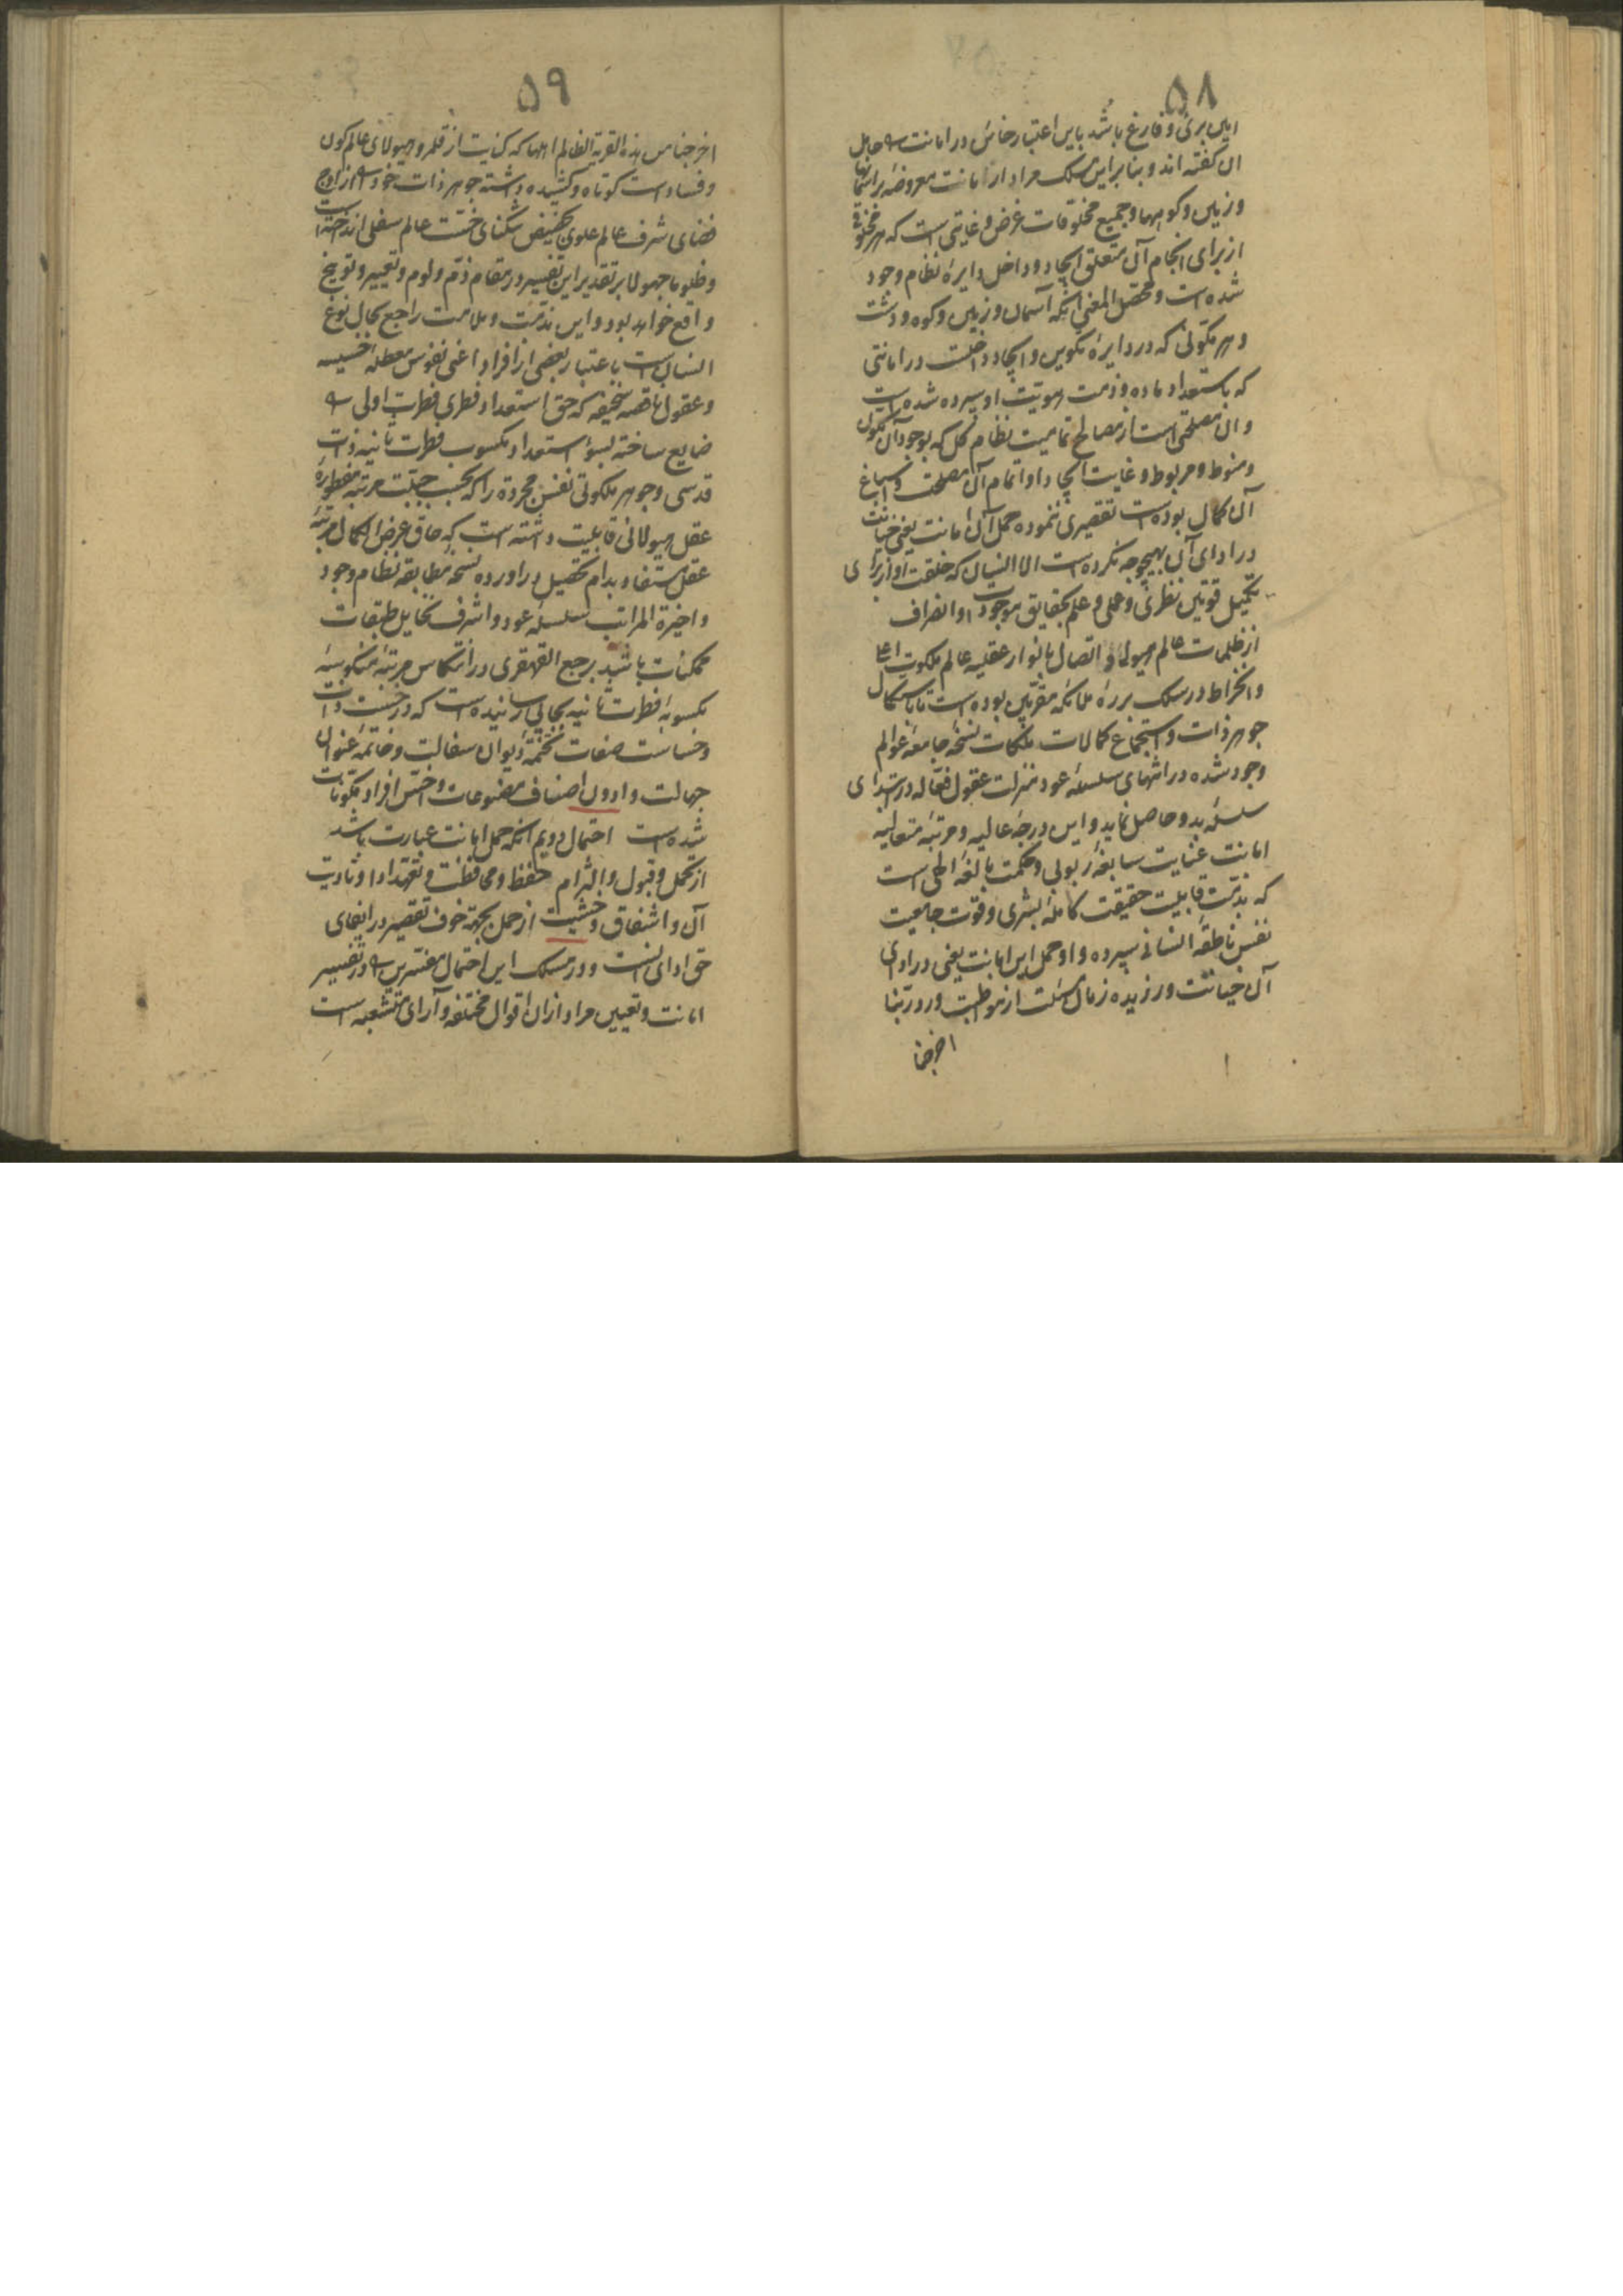 ۵۸
این بری و فارغ باشد باین اعتبار خائن در امانت را حامل
آن گفته‌اند و بنابراین مسلک مراد از امانت معروضه بر آسمانها
و زمین و کوهها و جمیع مخلوقات غرض و غایتی است که هر مخلوقی
از برای انجام آن متعلق ایجاد و داخل دایرهٔ نظام وجود
شده است و محصل المعنی آنکه آسمان و زمین و کوه و دشت
و هر مکونی که در دایرهٔ تکوین و ایجاد داخلست در امانتی
که باستعداد ماده و ذمت هویت او سپرده شده است
و آن مصلحتی است از مصالح تمامیت نظام کل که بوجود آن مکون
و منوط و مربوط و غایت ایجاد او اتمام آن مصلحت و اسباغ
آن کمال بوده است تقصیری ننموده حمل آن امانت یعنی خیانت
در ادای آن بهیچوجه نکرده است الا انسان که خلقت او از برای
تکمیل قوتین نظری و عملی و علم بحقایق موجودات و انصراف
از ظلمات عالم هیولا و اتصال بانوار عقلیه عالم ملکوت اعلی
و انخراط در سلک بررهٔ ملائکه مقربین بوده است تا باستکمال
جوهر ذات و استجماع کمالات ملکات نسخهٔ جامعهٔ عوالم
وجود شده در انتهای سلسلهٔ عود منزلت عقول فعاله در ابتدای
سلسلهٔ بدو حاصل نماید و این درجهٔ عالیه و مرتبهٔ متعالیه
امانت عنایت سابغهٔ ربوبی و حکمت بالغهٔ الهی است
که بذمت قابلیت حقیقت کاملهٔ بشری و قوت جامعیت
نفس ناطقهٔ انسانی سپرده و او حمل این امانت یعنی در ادای
آن خیانت ورزیده زمان مسئلت از مواظبت ورد ربنا
اخرجنا
۵۹
اخرجنا من هذه القریة الظالم اهلها که کنایت از قلمرو هیولای عالم کون
و فساد است کوتاه و کشیده داشته جوهر ذات خود را از اوج
فضای شرف عالم علوی بحضیض تنگنای خست عالم سفلی انداخته است
و ظلوما جهولا بر تقدیر این تفسیر در مقام ذم و لوم و تعییر و توبیخ
واقع خواهد بود و این مذمت و ملامت راجع بحال نوع
انسان است باعتبار بعضی از افراد اعنی نفوس معطلهٔ خسیسه
و عقول ناقصه سخیفه که حق استعداد فطری فطرت اولی را
ضایع ساخته بسوء استعداد مکسوب فطرت ثانیه ذات
قدسی و جوهر ملکوتی نفس مجرده را که بحسب جبلت مرتبهٔ مفطورهٔ
عقل هیولانی قابلیت داشته است که حاق عرض الکمال مرتبهٔ
عقل مستفاد بدام تحصیل درآورده نسخهٔ مطابقهٔ نظام وجود
و اخیرة المراتب سلسلهٔ عود و اشرف مخایل طبقات
ممکنات باشد برجع القهقری در انتکاس مرتبهٔ منکوسهٔ
مکسوبهٔ فطرت ثانیه بجائی رسانیده است که در خست ذات
و خساست صفات تختمهٔ دیوان سفالت و خاتمهٔ عنوان
جهالت و ادون اصناف مصنوعات و اخس افراد مکونات
شده است احتمال دویم آنکه حمل امانت عبارت باشد
از تحمل و قبول و التزام حفظ و محافظت و تعهد ادا و تأدیت
آن و اشفاق و خشیت از حمل بجهة خوف تقصیر در ایفای
حق ادای آنست و در مسلک این احتمال مفسرین را در تفسیر
امانت و تعیین مراد از آن اقوال مختلفه و آرای متشعبه است